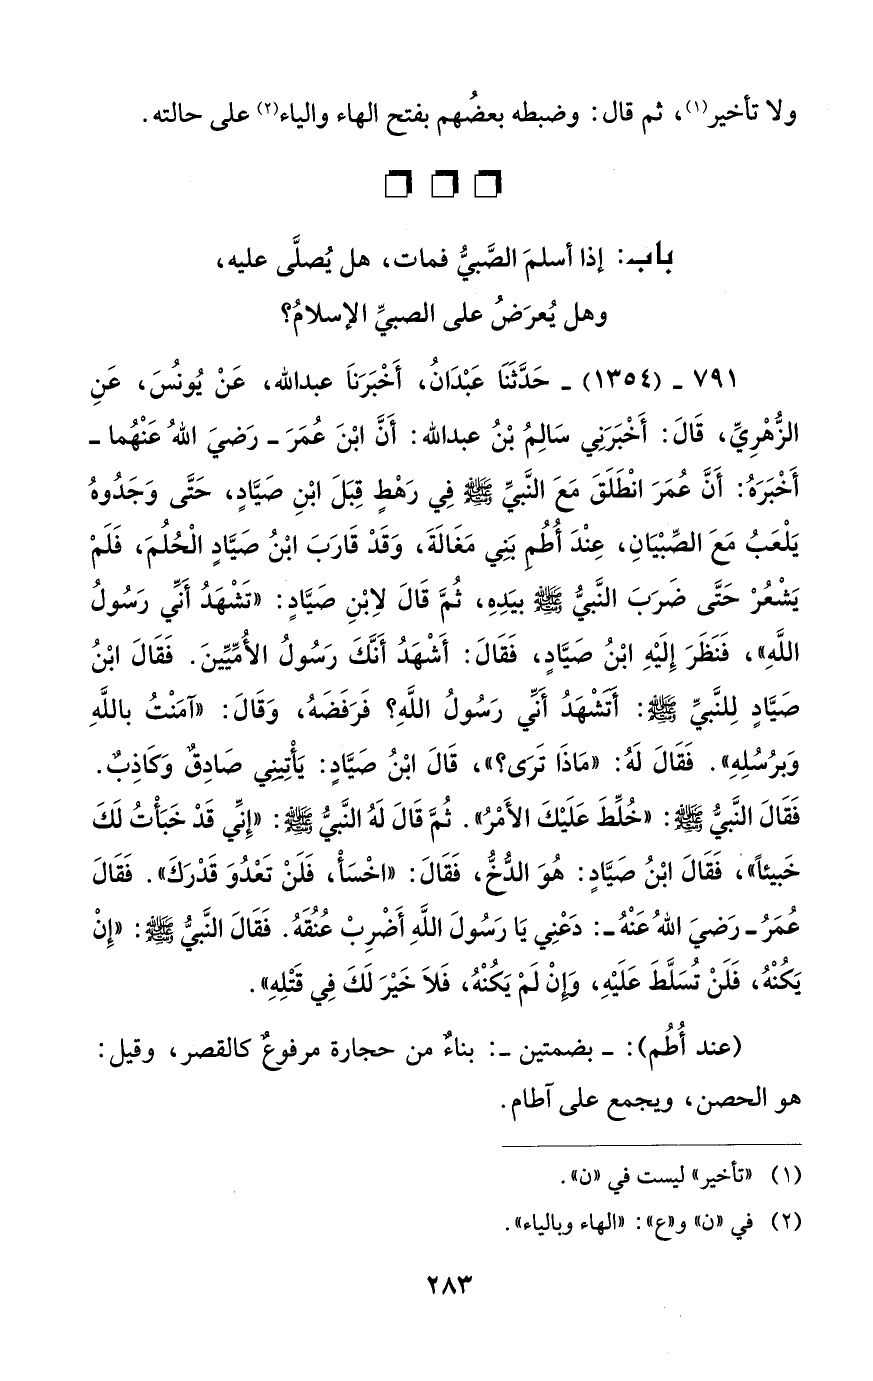 ولا تأخير(١)، ثم قال: وضبطه بعضُهم بفتح الهاء والياء(٢) على حالته.
باب: إذا أسلمَ الصَّبيُّ فمات، هل يُصلَّى عليه،
وهل يُعرَضُ على الصبيِّ الإسلامُ؟
٧٩١ ـ (١٣٥٤) ـ حَدَّثَنَا عَبْدَانُ، أَخْبَرَنَا عبدالله، عَنْ يُونُسَ، عَنِ
الزُّهْرِيِّ، قَالَ: أَخْبَرَنِي سَالِمُ بْنُ عبدالله: أَنَّ ابْنَ عُمَرَ ـ رَضيَ اللهُ عَنْهُما ـ
أَخْبَرَهُ: أَنَّ عُمَرَ انْطَلَقَ مَعَ النَّبيِّ ﷺ فِي رَهْطٍ قِبَلَ ابْنِ صَيَّادٍ، حَتَّى وَجَدُوهُ
يَلْعَبُ مَعَ الصِّبْيَانِ، عِنْدَ أُطُمِ بَنِي مَغَالَةَ، وَقَدْ قَارَبَ ابْنُ صَيَّادٍ الْحُلُمَ، فَلَمْ
يَشْعُرْ حَتَّى ضَرَبَ النَّبيُّ ﷺ بيَدِهِ، ثُمَّ قَالَ لاِبْنِ صَيَّادٍ: «تَشْهَدُ أَنِّي رَسُولُ
اللَّهِ»، فَنَظَرَ إِلَيْهِ ابْنُ صَيَّادٍ، فَقَالَ: أَشْهَدُ أَنَّكَ رَسُولُ الأُمِّيِّينَ. فَقَالَ ابْنُ
صَيَّادٍ لِلنَّبيِّ ﷺ: أَتَشْهَدُ أَنِّي رَسُولُ اللَّهِ؟ فَرَفَضَهُ، وَقَالَ: «آمَنْتُ باللَّهِ
وَبرُسُلِهِ». فَقَالَ لَهُ: «مَاذَا تَرَى؟»، قَالَ ابْنُ صَيَّادٍ: يَأْتِينِي صَادِقٌ وَكَاذِبٌ.
فَقَالَ النَّبيُّ ﷺ: «خُلِّطَ عَلَيْكَ الأَمْرُ». ثُمَّ قَالَ لَهُ النَّبيُّ ﷺ: «إِنِّي قَدْ خَبَأْتُ لَكَ
خَبيئاً»، فَقَالَ ابْنُ صَيَّادٍ: هُوَ الدُّخُّ، فَقَالَ: «اخْسَأْ، فَلَنْ تَعْدُوَ قَدْرَكَ». فَقَالَ
عُمَرُ ـ رَضيَ اللهُ عَنْهُ ـ: دَعْنِي يَا رَسُولَ اللَّهِ أَضْرِبْ عُنُقَهُ. فَقَالَ النَّبيُّ ﷺ: «إِنْ
يَكُنْهُ، فَلَنْ تُسَلَّطَ عَلَيْهِ، وَإِنْ لَمْ يَكُنْهُ، فَلاَ خَيْرَ لَكَ فِي قَتْلِهِ».
(عند أُطُم): ـ بضمتين ـ: بناءٌ من حجارة مرفوعٌ كالقصر، وقيل:
هو الحصن، ويجمع على آطام.
(١) «تأخير» ليست في «ن».
(٢) في «ن» و«ع»: «الهاء وبالياء».
٢٨٣